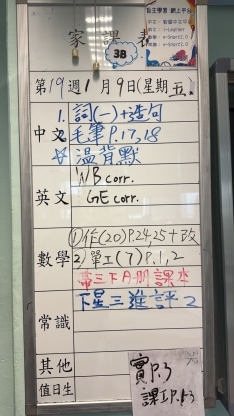 家課表
3B
自主學習 網上平台
第19週1月9日(星期五)
中文
1. 詞(一)+造句
2. 毛筆P.17,18
☆ 溫背默
英文
WB corr.
GE corr.
數學
①作(20)P.24,25+改
2) 單工(7)P.1,2
帶三下A冊課本
下星三進評2
常識
其他
值日生
實P.3
課工P.1-3